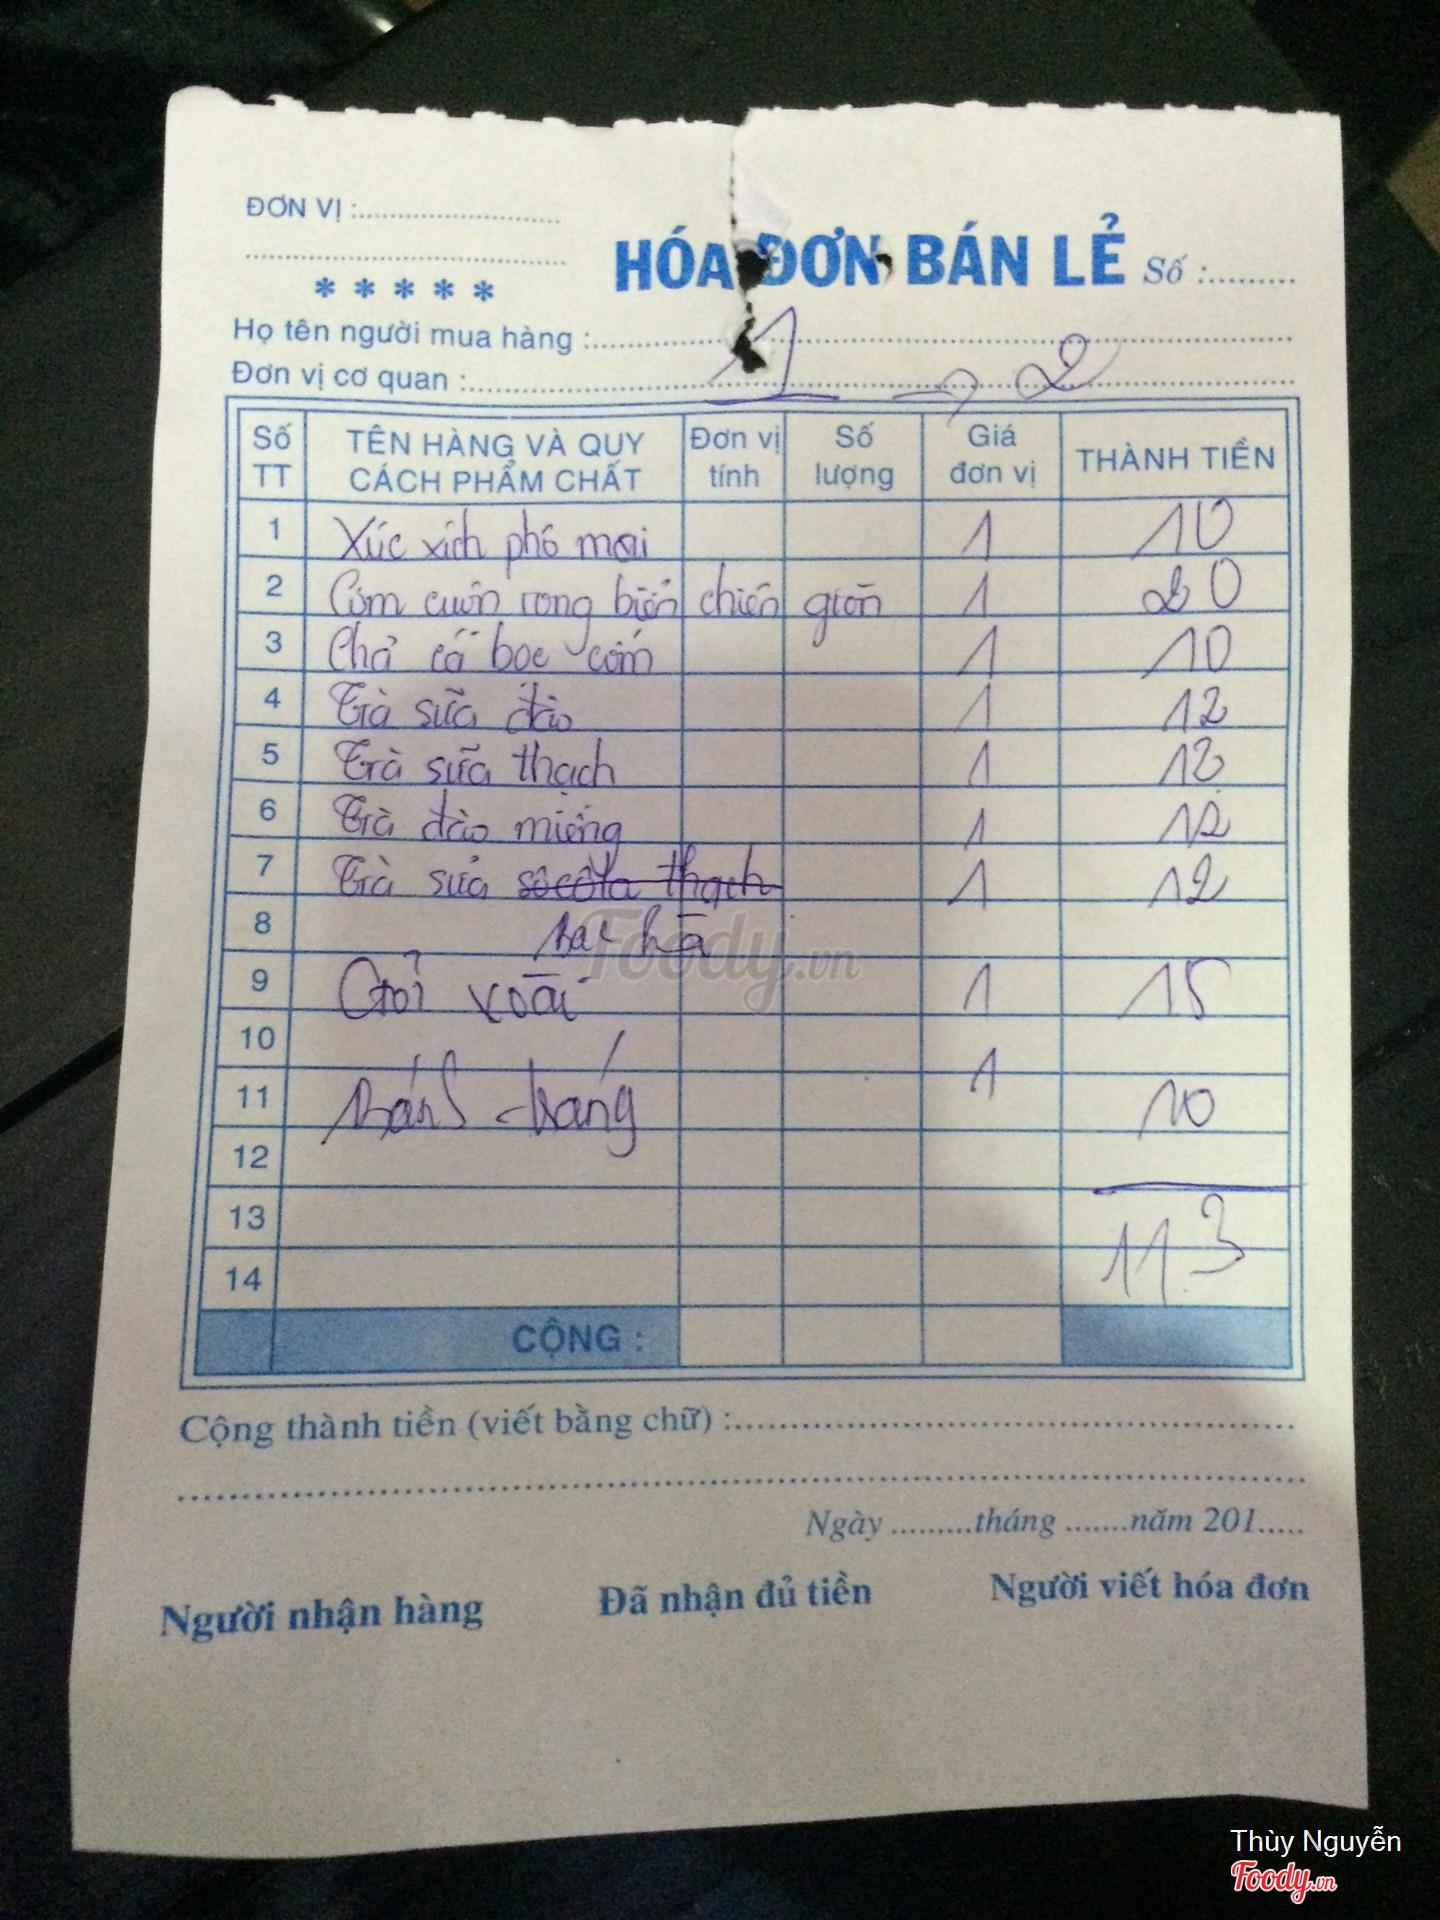 ĐƠN VỊ :
HÓA ĐƠN BÁN LẺ Số :
* * * * *
Họ tên người mua hàng :
Đơn vị cơ quan :
1 2
Số TT TÊN HÀNG VÀ QUY CÁCH PHẨM CHẤT Đơn vị tính Số lượng Giá đơn vị THÀNH TIỀN
1 Xúc xích phô mai 1 10
2 Cơm cuộn rong biển chiên giòn 1 20
3 Chả cá bọc cốm 1 10
4 Trà sữa đào 1 12
5 Trà sữa thạch 1 12
6 Trà đào miếng 1 12
7 Trà sữa sôcôla thạch 1 12
8 Bạc hà
9 Gỏi xoài 1 15
10 1
11 Bánh tráng 10
12
13 113
14
CỘNG :
Cộng thành tiền (viết bằng chữ) :
Ngày tháng năm 201
Người nhận hàng Đã nhận đủ tiền Người viết hóa đơn
Foody.vn
Thùy Nguyễn
Foody.vn